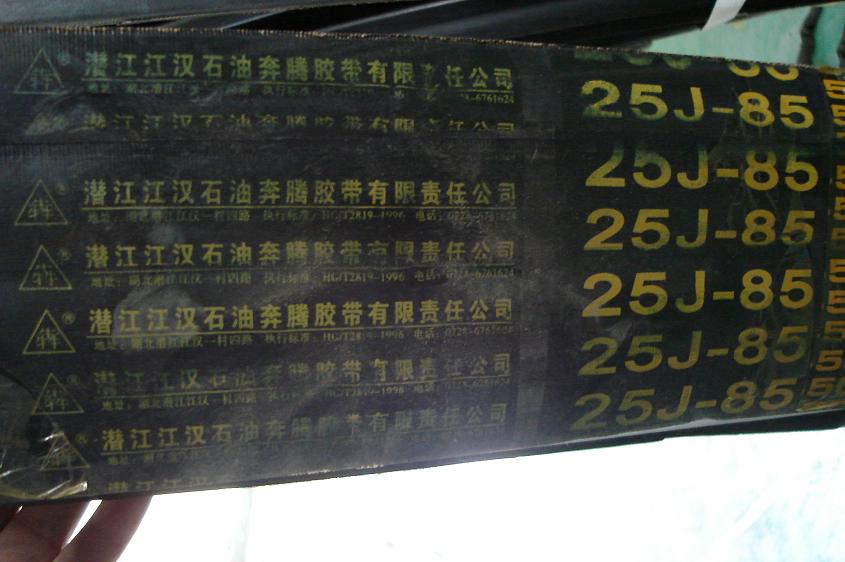 潜江江汉石油奔腾胶带有限责任公司
执行标准 6761624
25J-85
潜江江汉石油奔腾胶带有限责任公司
犇® 潜江江汉石油奔腾胶带有限责任公司
地址：湖北潜江江汉一村四路 执行标准：HG/T2819-1996 电话：0728-6761624
25J-85
犇® 潜江江汉石油奔腾胶带有限责任公司
地址：湖北潜江江汉一村四路 执行标准：HG/T2819-1996 电话：0728-6761624
25J-85
犇® 潜江江汉石油奔腾胶带有限责任公司
地址：湖北潜江江汉一村四路 执行标准：HG/T2819-1996 电话：0728-6761624
25J-85
犇 潜江江汉石油奔腾胶带有限责任公司
地址：湖北潜江江汉一村四路 执行标准：HG/T2819-1996 电话：0728-6761624
25J-85
潜江江汉石油奔腾胶带有限责任公司
25J-85